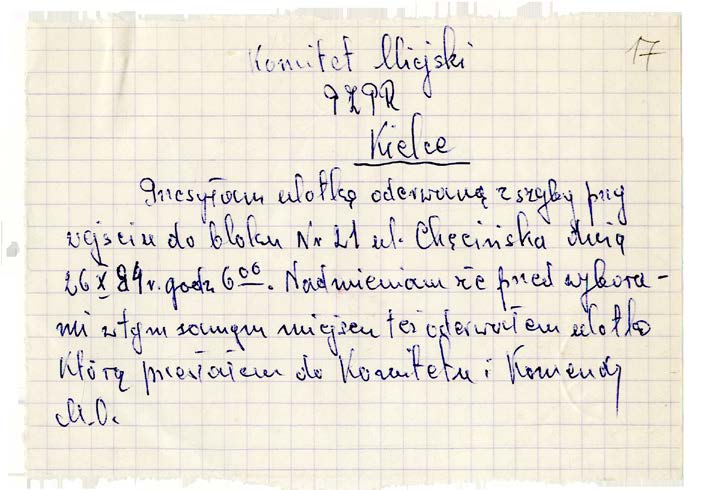 17
Komitet Miejski
PZPR
Kielce
Przesyłam ulotkę oderwaną z szyby przy
wejściu do bloku Nr 21 ul. Chęcińska dnia
26 X 84 r. godz 6⁰⁰. Nadmieniam że przed wybora-
mi w tym samym miejscu też oderwałem ulotkę
którą przesłałem do Komitetu i Komendy
M.O.